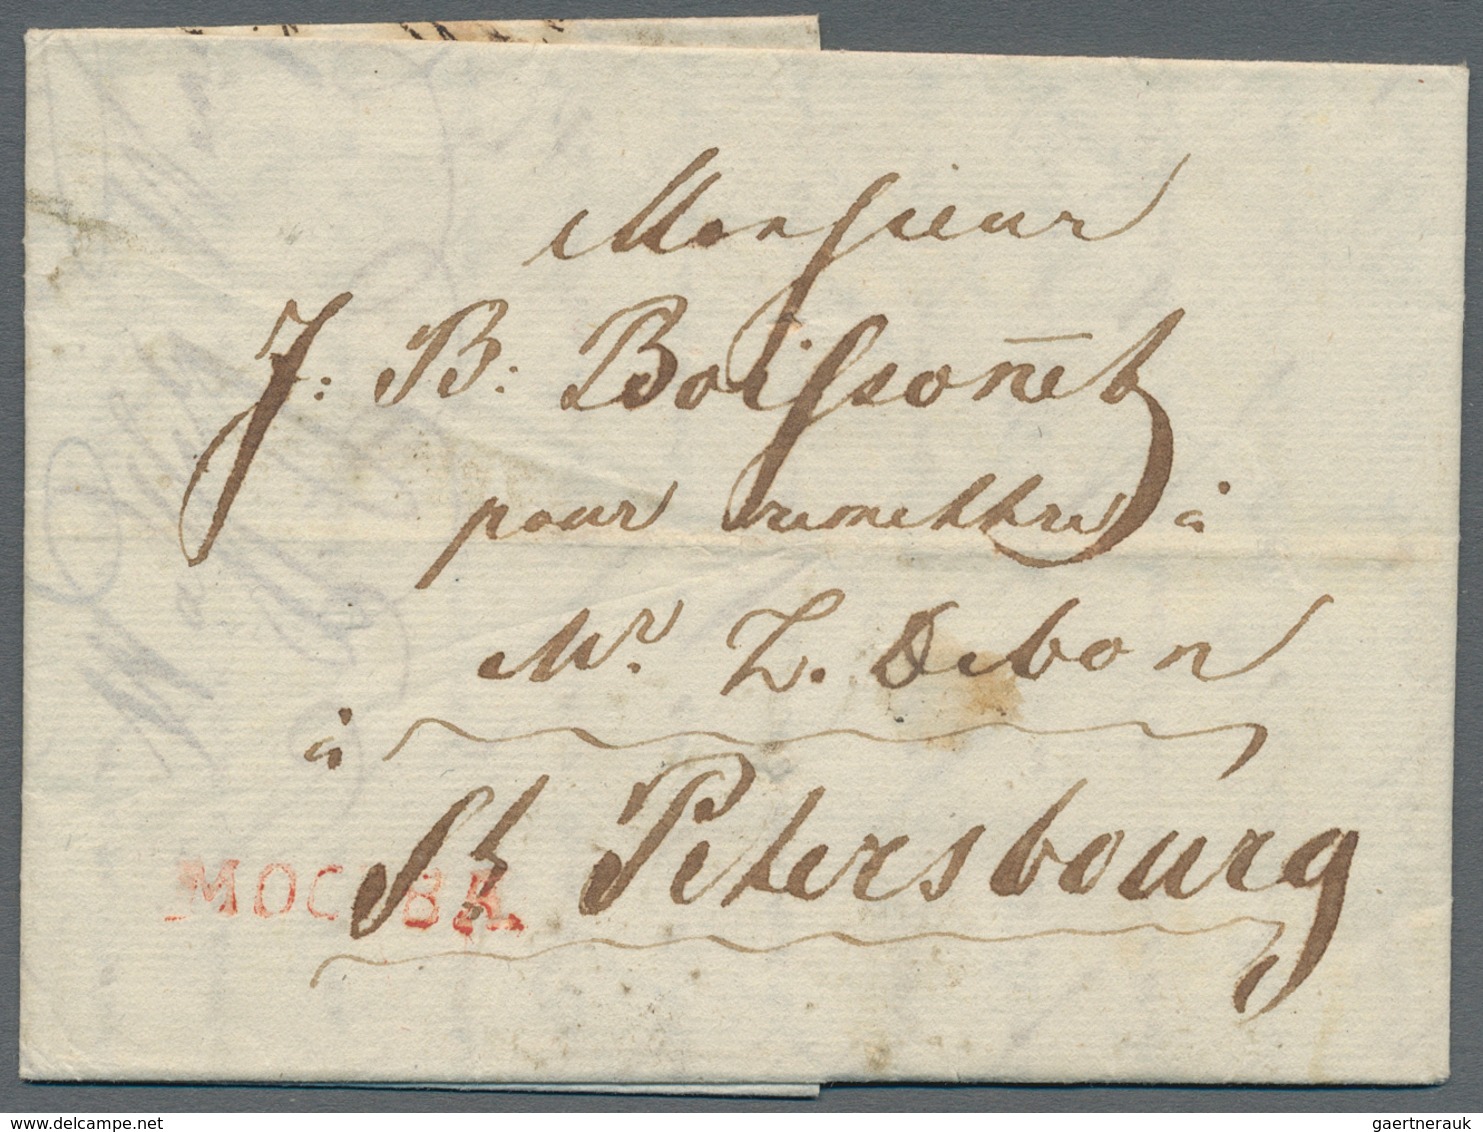 Monsieur
J. B. Boisson̄et
pour remettre à
Mr. L. Debon
à
St Petersbourg
МОСКВА
gaertnerauk